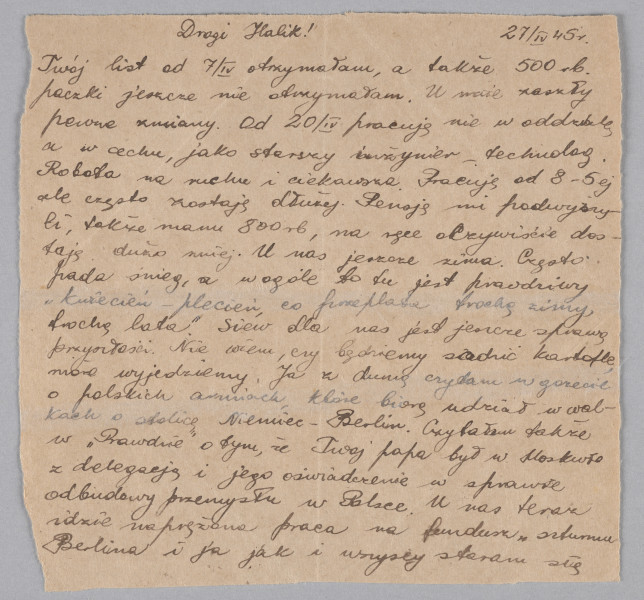 Drogi Halik! 27/IV 45 r.
Twój list od 7/IV otrzymałam, a także 500 rb.
paczki jeszcze nie otrzymałam. U mnie zaszły
pewne zmiany. Od 20/IV pracuję nie w oddziale
a w cechu, jako starszy inżynier – technolog.
Robota na ruchu i ciekawsza. Pracuję od 8-5ej
ale często zostaję dłużej. Pensję mi podwyższy-
li, także mam 800 rb, na ręce oczywiście dos-
taję dużo mniej. U nas jeszcze zima. Często
pada śnieg, a w ogóle to tu jest prawdziwy
„kwiecień – plecień, co przeplata trochę zimy,
trochę lata". Siew dla nas jest jeszcze sprawą
przyszłości. Nie wiem, czy będziemy sadzić kartofle,
może wyjedziemy. Ja z dumą czytam w gazecie
o polskich armiach, które biorą udział w wal-
kach o stolicę Niemiec – Berlin. Czytałam także
w „Prawdzie" o tym, że Twój papa był w Moskwie
z delegacją i jego oświadczenie w sprawie
odbudowy przemysłu w Polsce. U nas teraz
idzie naprężona praca na fundusz „szturmu
Berlina i ja jak i wszyscy staram się